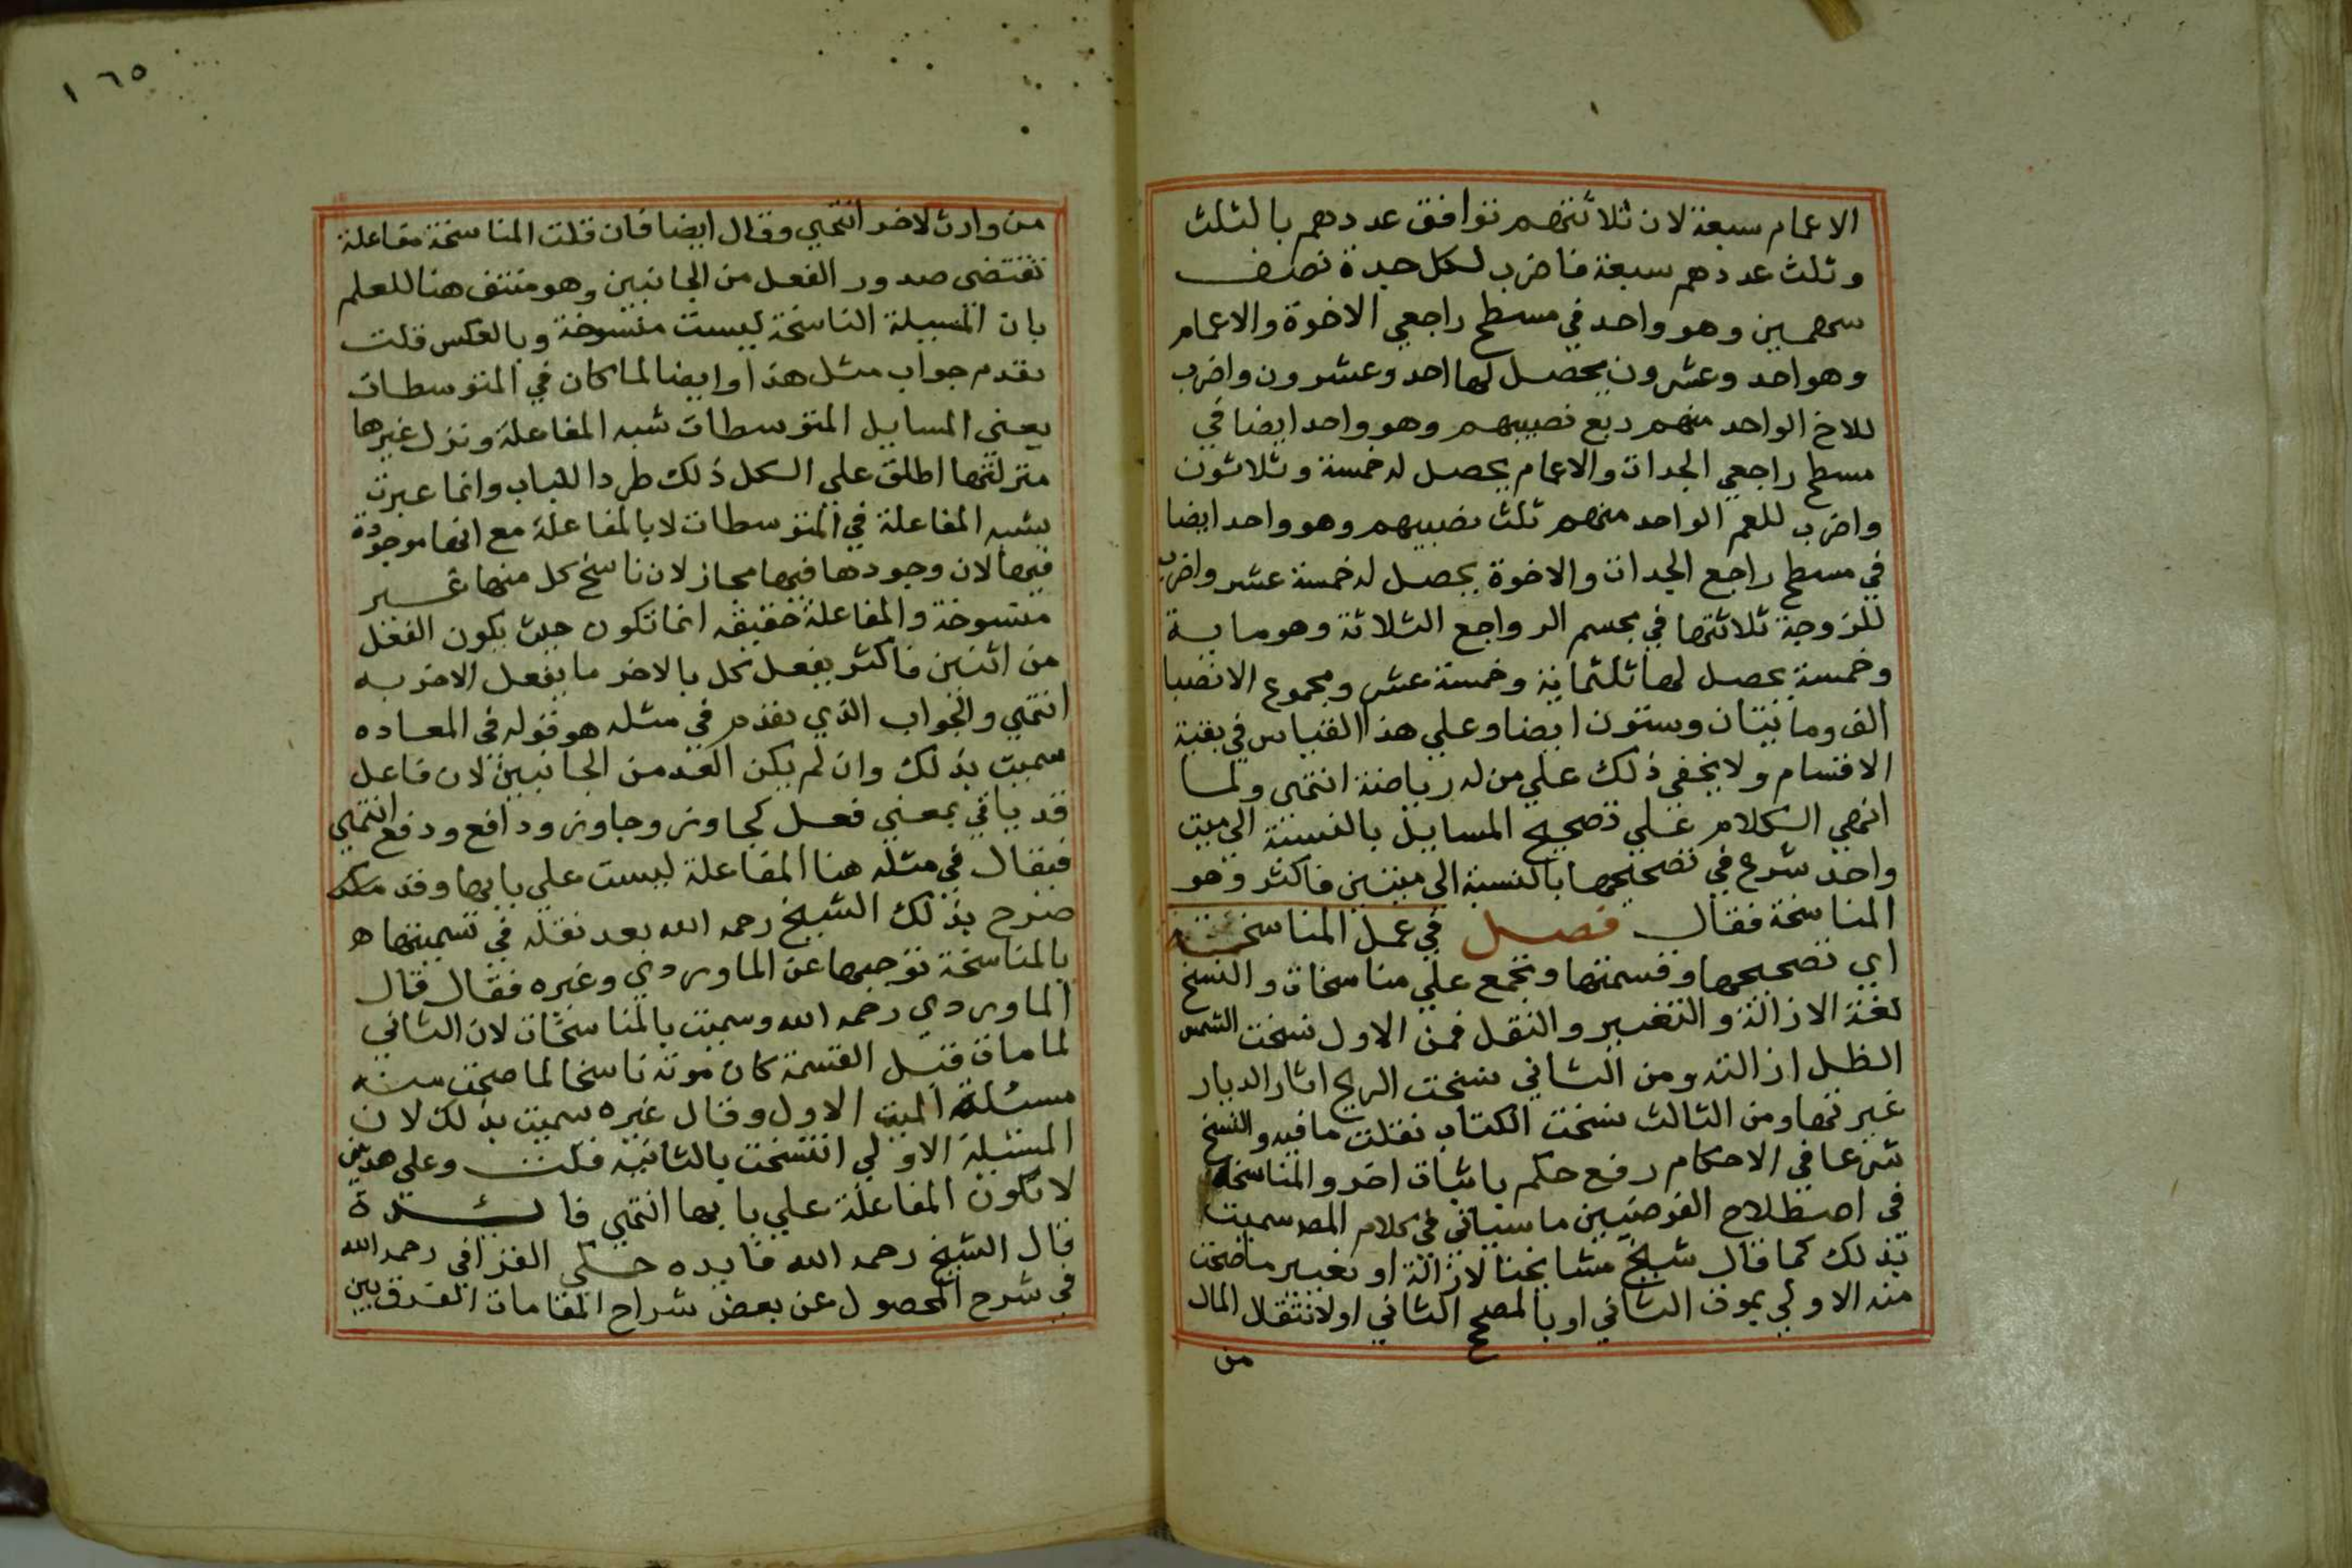 الاعمام سبعة لان ثلاثتهم توافق عددهم بالثلث
وثلث عددهم سبعة فاضرب لكل جدة نصف
سهمين وهو واحد في مسطح راجعي الاخوة والاعمام
وهو احد وعشرون يحصل لها احد وعشرون واضرب
للاخ الواحد منهم ربع نصيبهم وهو واحد ايضا في
مسطح راجعي الجدات والاعمام يحصل له خمسة وثلاثون
واضرب للعم الواحد منهم ثلث نصيبهم وهو واحد ايضا
في مسطح راجع الجدات والاخوة يحصل له خمسة عشر واضرب
للزوجة ثلاثتها في مجسم الرواجع الثلاثة وهو ماية
وخمسة يحصل لها ثلثماية وخمسة عشر ومجموع الانصبا
الف ومائتان وستون ايضا وعلي هذا القياس في بقية
الاقسام ولا يخفي ذلك علي من له رياضة انتهي ولما
انهي الكلام علي تصحيح المسايل بالنسبة الي ميت
واحد شرع في تصحيحها بالنسبة الي ميتين فاكثر وهو
المناسخة فقال فصل في عمل المناسخة
اي تصحيحها وقسمتها وتجمع علي مناسخات والنسخ
لغة الازالة والتغيير والنقل فمن الاول نسخت الشمس
الظل ازالته ومن الثاني نسخت الريح اثار الديار
غيرتها ومن الثالث نسخت الكتاب نقلت ما فيه والنسخ
شرعا في الاحكام رفع حكم باثبات اخر والمناسخة
في اصطلاح الفرضيين ما سياتي في كلام المص سميت
بذلك كما قال شيخ مشايخنا لازالة او تغيير ما صحت
منه الاولي بموت الثاني او بالمصحح الثاني او لانتقال المال
من
١٦٥
من وارث لاخر انتهي وقال ايضا فان قلت المناسخة مفاعلة
تقتضي صدور الفعل من الجانبين وهو منتف هنا للعلم
بان المسيلة الناسخة ليست منسوخة وبالعكس قلت
تقدم جواب مثل هذا وايضا لما كان في المتوسطات
يعني المسايل المتوسطات شبه المفاعلة ونزل غيرها
منزلتها اطلق علي الكل ذلك طردا للباب وانما عبرت
بشبه المفاعلة في المتوسطات لا بالمفاعلة مع انها موجودة
فيها لان وجودها فيها مجاز لان ناسخ كل منها غير
منسوخة والمفاعلة حقيقه انما تكون حيث يكون الفعل
من اثنين فاكثر يفعل كل بالاخر ما يفعل الاخر به
انتهي والجواب الذي تقدم في مثله هو قوله في المعاده
سميت بذلك وان لم يكن العد من الجانبين لان فاعل
قد ياتي بمعني فعل كجاوز وجاوز ودافع ودفع انتهي
فيقال في مثله هنا المفاعلة ليست علي بابها وقد
صرح بذلك الشيخ رحمه الله بعد نقله في تسميتها
بالمناسخة توجيها عن الماوردي وغيره فقال قال
الماوردي رحمه الله وسميت بالمناسخات لان الثاني
لما مات قبل القسمة كان موته ناسخا لما صحت منه
مسئلة الميت الاول وقال غيره سميت بذلك لان
المسئلة الاولي انتسخت بالثانيه قلت وعلي هذين
لا تكون المفاعلة علي بابها انتهي فائدة
قال الشيخ رحمه الله فايده حكي القرافي رحمه الله
في شرح المحصول عن بعض شراح المقامات الفرق بين